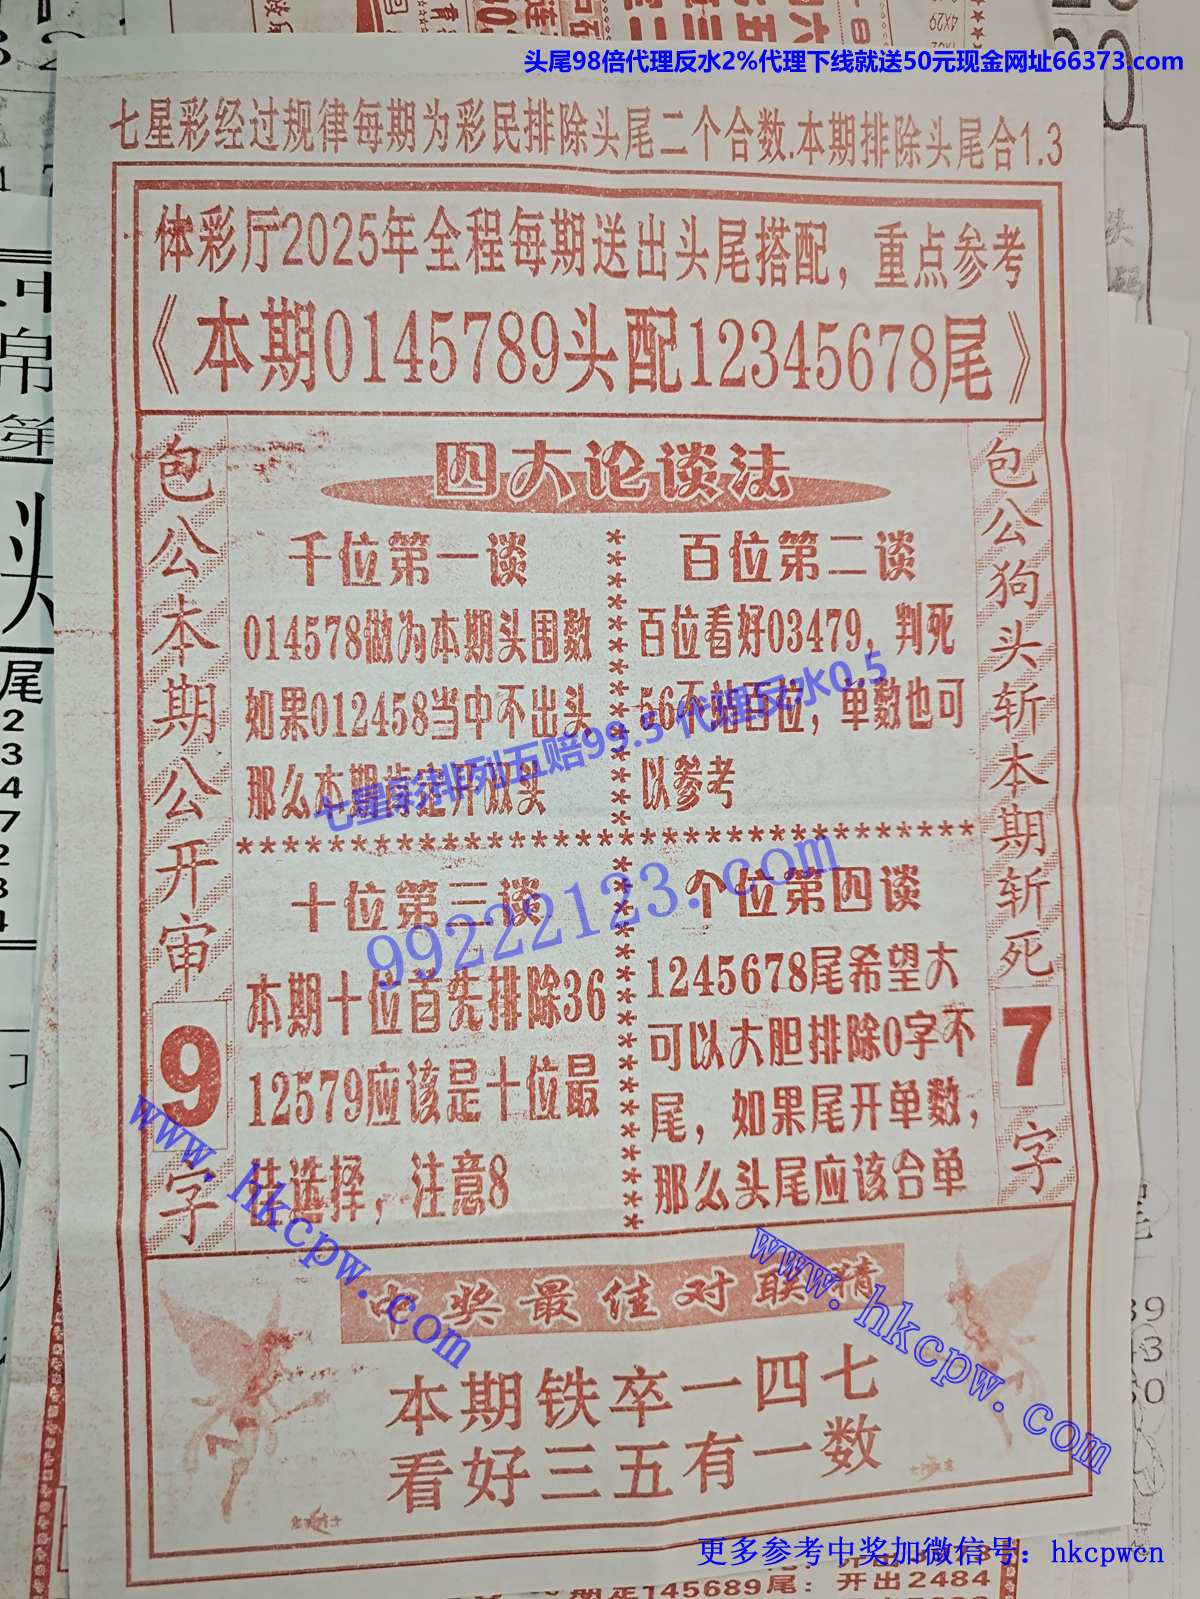 头尾98倍代理反水2%代理下线就送50元现金网址66373.com
七星彩经过规律每期为彩民排除头尾二个合数.本期排除头尾合1.3
体彩厅2025年全程每期送出头尾搭配，重点参考
《本期0145789头配12345678尾》
包公本期公开审9字
四大论谈法
千位第一谈
014578做为本期头围数
如果012458当中不出头，
那么本期肯定开双头
百位第二谈
百位看好03479，判死
56不站百位，单数也可
以参考
十位第三谈
本期十位首先排除36
12579应该是十位最
佳选择，注意8
个位第四谈
1245678尾希望大
可以大胆排除0字不
尾，如果尾开单数，
那么头尾应该合单
包公狗头斩本期斩死7字
七星彩排列五赔99.5 代理反水0.5
99222123.com
www.hkcpw.com
www.hkcpw.com
中奖最佳对联猜
本期铁卒一四七
看好三五有一数
更多参考中奖加微信号：hkcpwcn
145689尾：开出2484